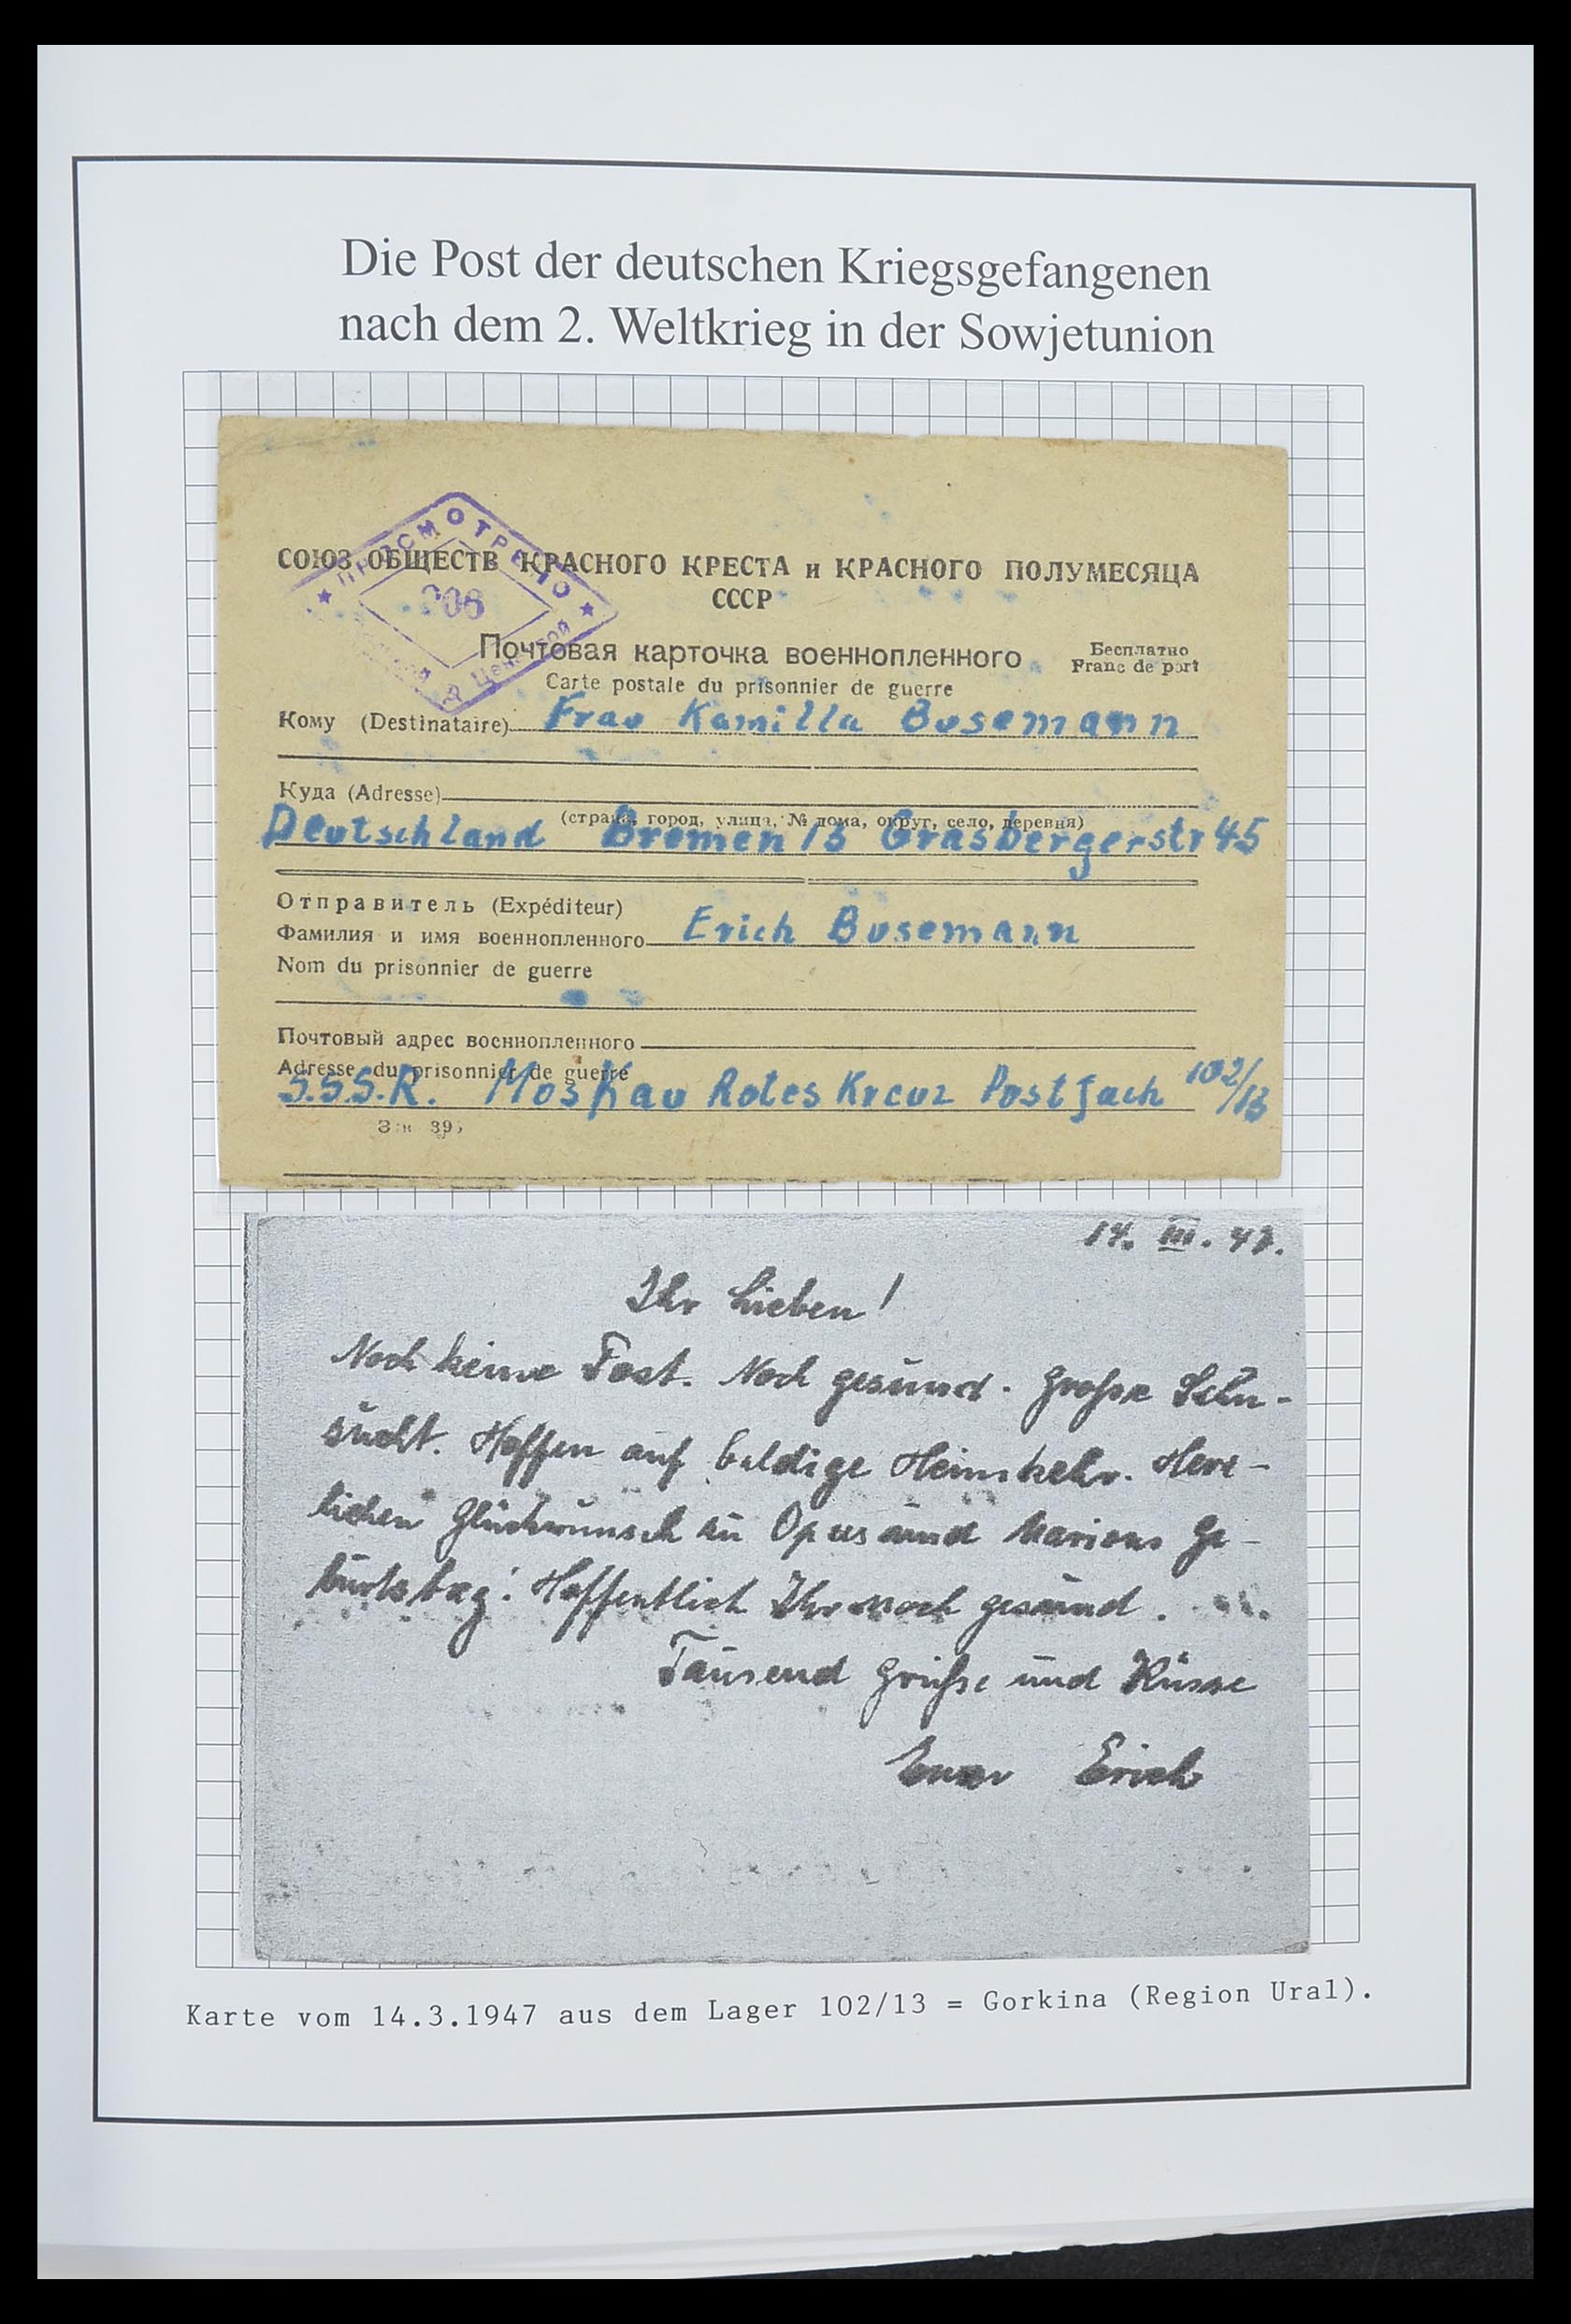 Die Post der deutschen Kriegsgefangenen
nach dem 2. Weltkrieg in der Sowjetunion
ПРОСМОТРЕНО
СОЮЗ ОБЩЕСТВ КРАСНОГО КРЕСТА и КРАСНОГО ПОЛУМЕСЯЦА
СССР
Почтовая карточка военнопленного
Бесплатно
Franc de port
Carte postale du prisonnier de guerre
Кому (Destinataire) Frau Kamilla Busemann
Куда (Adresse)
(страна, город, улица, № дома, округ, село, деревня)
Deutschland Bremen 13 Grasbergerstr 45
Отправитель (Expéditeur)
Фамилия и имя военнопленного Erich Busemann
Nom du prisonnier de guerre
Почтовый адрес военнопленного
Adresse du prisonnier de guerre
S.S.S.R. Moskau Rotes Kreuz Postfach 102/13
14. III. 47.
Ihr Lieben!
Noch keine Post. Noch gesund. Große Sehn-
sucht. Hoffen auf baldige Heimkehr. Herz-
lichen Glückwunsch zu Opas und Marions Ge-
burtstag! Hoffentlich Ihr noch gesund.
Tausend Grüße und Küsse
Euer Erich
Karte vom 14.3.1947 aus dem Lager 102/13 = Gorkina (Region Ural).